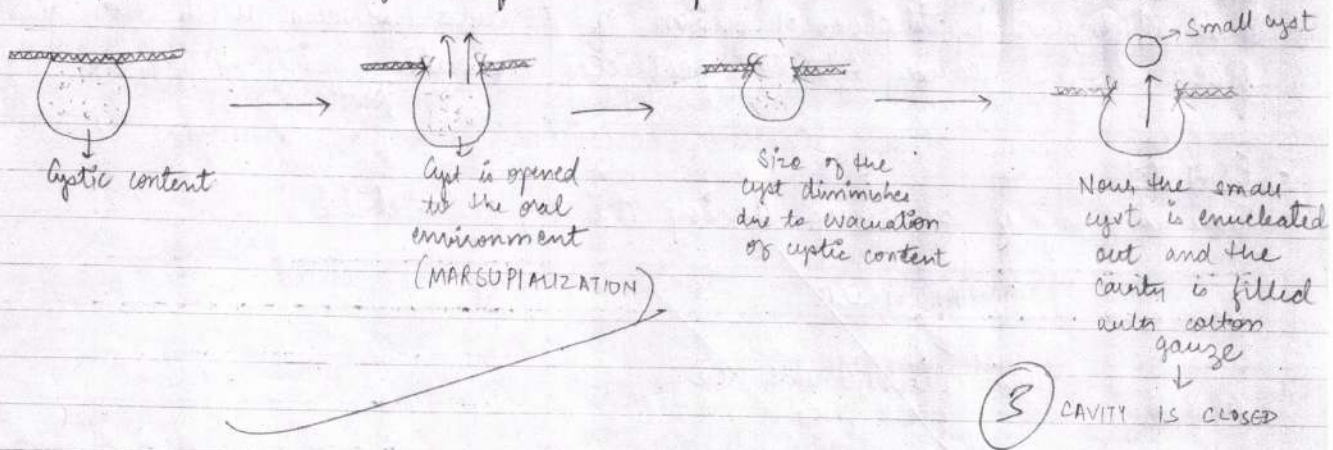 Small cyst
Cystic content
Cyst is opened
to the oral
environment
(MARSUPIALIZATION)
Size of the
cyst diminishes
due to evacuation
of cystic content
Now, the small
cyst is enucleated
out and the
cavity is filled
with cotton
gauze
3
CAVITY IS CLOSED